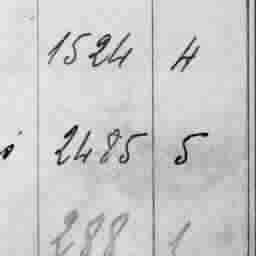 1524 4
2485 5
288 1